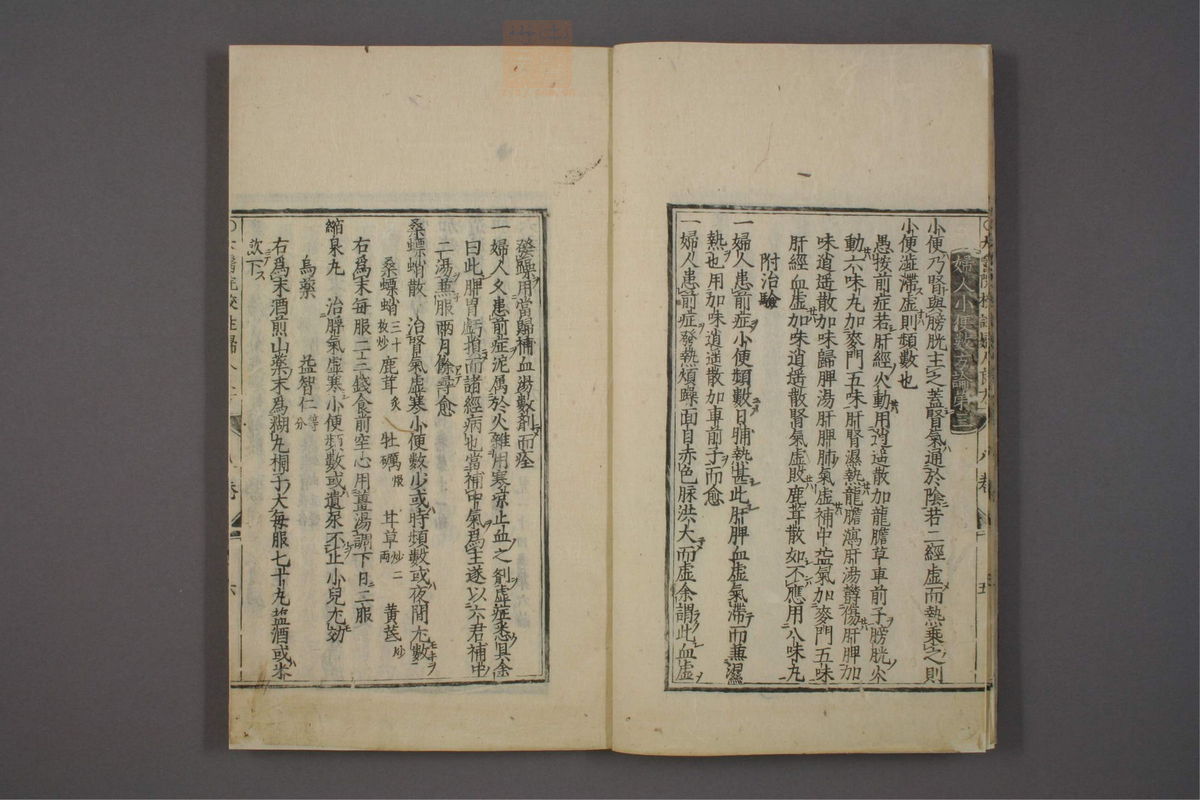 婦人小便數方論第三
小便乃腎與膀胱主之蓋腎氣通於陰若二經虛而熱乘之則
小便澁滯虛則頻數也
愚按前症若肝經火動用逍遙散加龍膽草車前子膀胱火
動六味丸加麥門五味肝腎濕熱龍膽瀉肝湯欝傷肝脾加
味逍遥散加味歸脾湯肝脾肺氣虛補中益氣加麥門五味
肝經血虛加味逍遥散腎氣虛敗鹿茸散如不應用八味丸
附治驗
一婦人患前症小便頻數日晡熱甚此肝脾血虛氣滯而兼濕
熱也用加味逍遥散加車前子而愈
一婦人患前症發熱煩躁面目赤色脉洪大而虛余謂此血虛
發躁用當歸補血湯數劑而痊
一婦人久患前症泥偶於火雜用寒凉止血之劑虛症悉具余
曰此脾胃虧損而諸經病也當補中氣爲主遂以六君補中
二湯兼服兩月餘尋愈
桑螵蛸散 治腎氣虛寒小便數少或時頻數或夜間尤數
桑螵蛸三十枚炒 鹿茸炙 牡礪煆 甘草炒二兩 黄茋炒
右爲末每服二三錢食前空心用薑湯調下日二三服
縮泉丸 治脬氣虛寒小便頻數或遺尿不止小兒尤効
烏藥 益智仁等分
右爲末酒煎山藥末爲糊丸桐子大每服七十丸塩酒或米
飲下